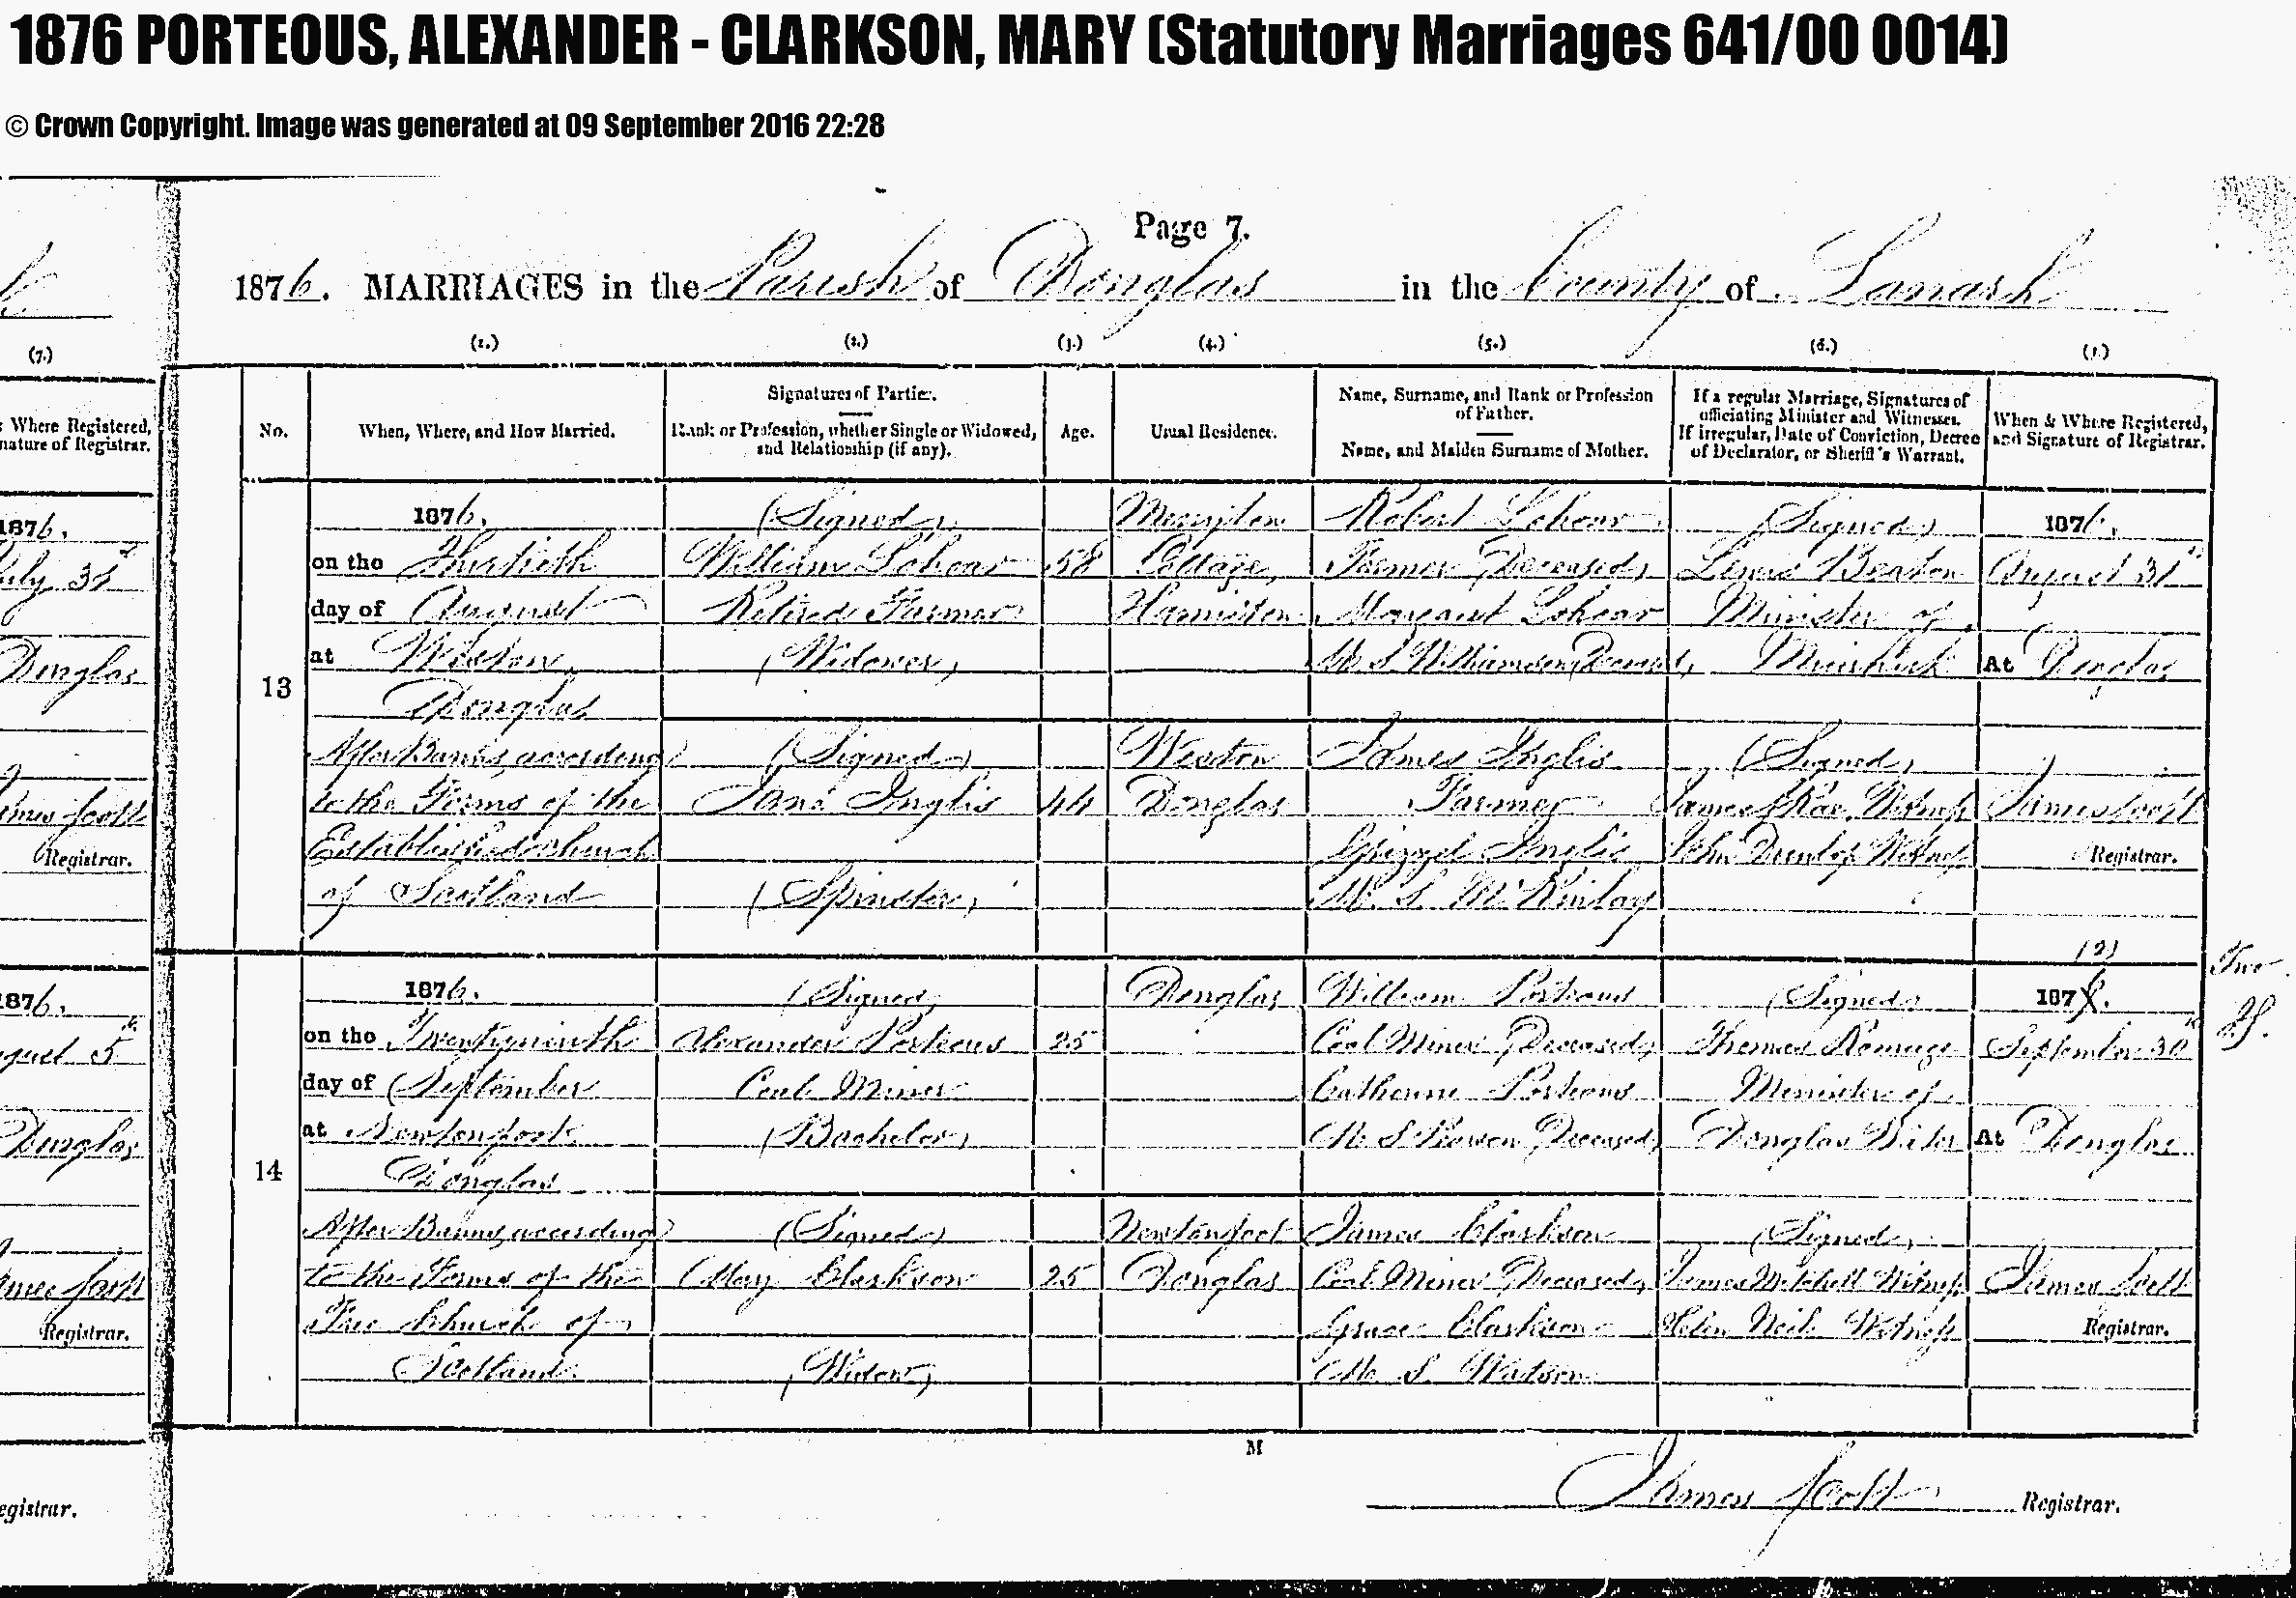 1876 PORTEOUS, ALEXANDER - CLARKSON, MARY (Statutory Marriages 641/00 0014)
© Crown Copyright. Image was generated at 09 September 2016 22:28
Page 7.
1876. MARRIAGES in the Parish of Douglas in the County of Lanark
(7.) (1.) (2.) (3.) (4.) (5.) (6.) (7.)
Where Registered,
nature of Registrar.
No.
When, Where, and How Married.
Signatures of Parties.
Rank or Profession, whether Single or Widowed,
and Relationship (if any).
Age.
Usual Residence.
Name, Surname, and Rank or Profession
of Father.
Name, and Maiden Surname of Mother.
If a regular Marriage, Signatures of
officiating Minister and Witnesses.
If irregular, Date of Conviction, Decree
of Declarator, or Sheriff's Warrant.
When & Where Registered,
and Signature of Registrar.
1876.
July 31st
Douglas
James Scott
Registrar.
13
1876.
on the Thirtieth
day of August
at Weston,
Douglas
After Banns, according
to the Forms of the
Established Church
of Scotland
(Signed)
William
Retired Farmer
(Widower)
58
Cottage,
Hamilton
Robert
Farmer (Deceased)
Margaret
M. S. Williamson (Deceased)
(Signed)
Minister of
Muirkirk
1876.
August 31st
At Douglas
(Signed)
Jane Inglis
(Spinster)
44
Weston
Douglas
James Inglis
Farmer
Grizzel Inglis
M. S. McKinlay
(Signed)
James Rae, Witness
John Dunlop Witness
James Scott
Registrar.
1876.
August 5th
Douglas
James Scott
Registrar.
14
1876.
on the Twentyninth
day of September
at Newtonfoot
Douglas
After Banns, according
to the Forms of the
Free Church of
Scotland
(Signed)
Alexander Porteous
Coal Miner
(Bachelor)
25
Douglas
William Porteous
Coal Miner (Deceased)
Catherine Porteous
M. S. (Deceased)
(Signed)
Thomas Ramage
Minister of
Douglas Water
(2)
187
September 30th
At Douglas
Two
JS.
(Signed)
Mary Clarkson
(Widow)
25
Newtonfoot
Douglas
James Clarkson
Coal Miner (Deceased)
Grace Clarkson
M. S. Watson
(Signed)
James Mitchell Witness
Helen Neil Witness
James Scott
Registrar.
M
James Scott Registrar.
egistrar.